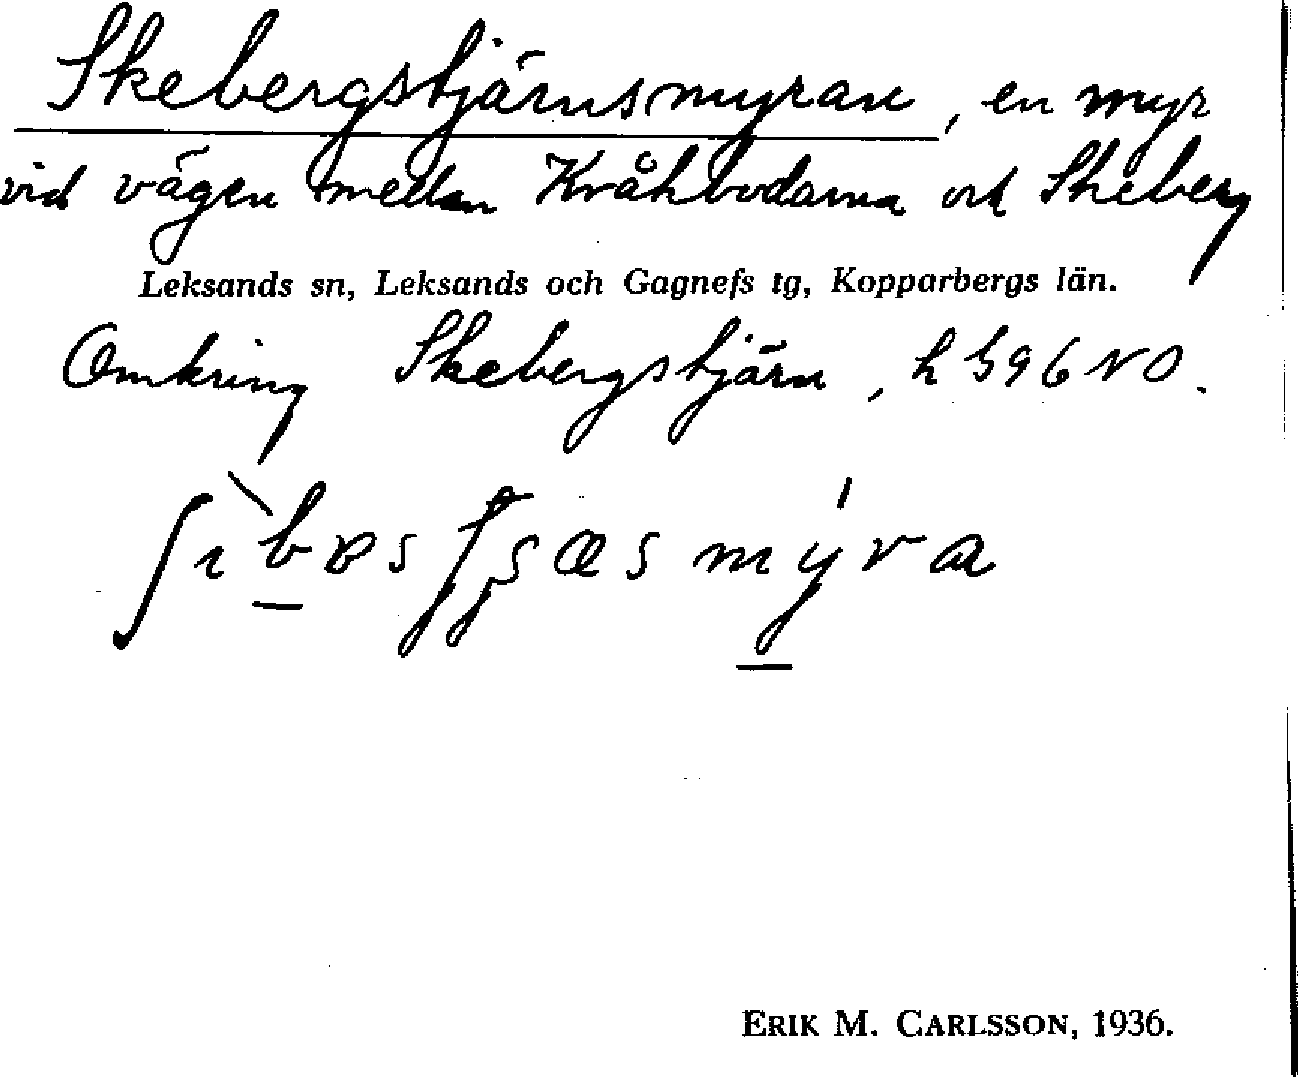 Skebergstjärnsmyran, en myr
vid vägen mellan Kråkbodarna och Skeberg
Leksands sn, Leksands och Gagnefs tg, Kopparbergs län.
Omkring Skebergstjärn, h 396 NO.
ERIK M. CARLSSON, 1936.